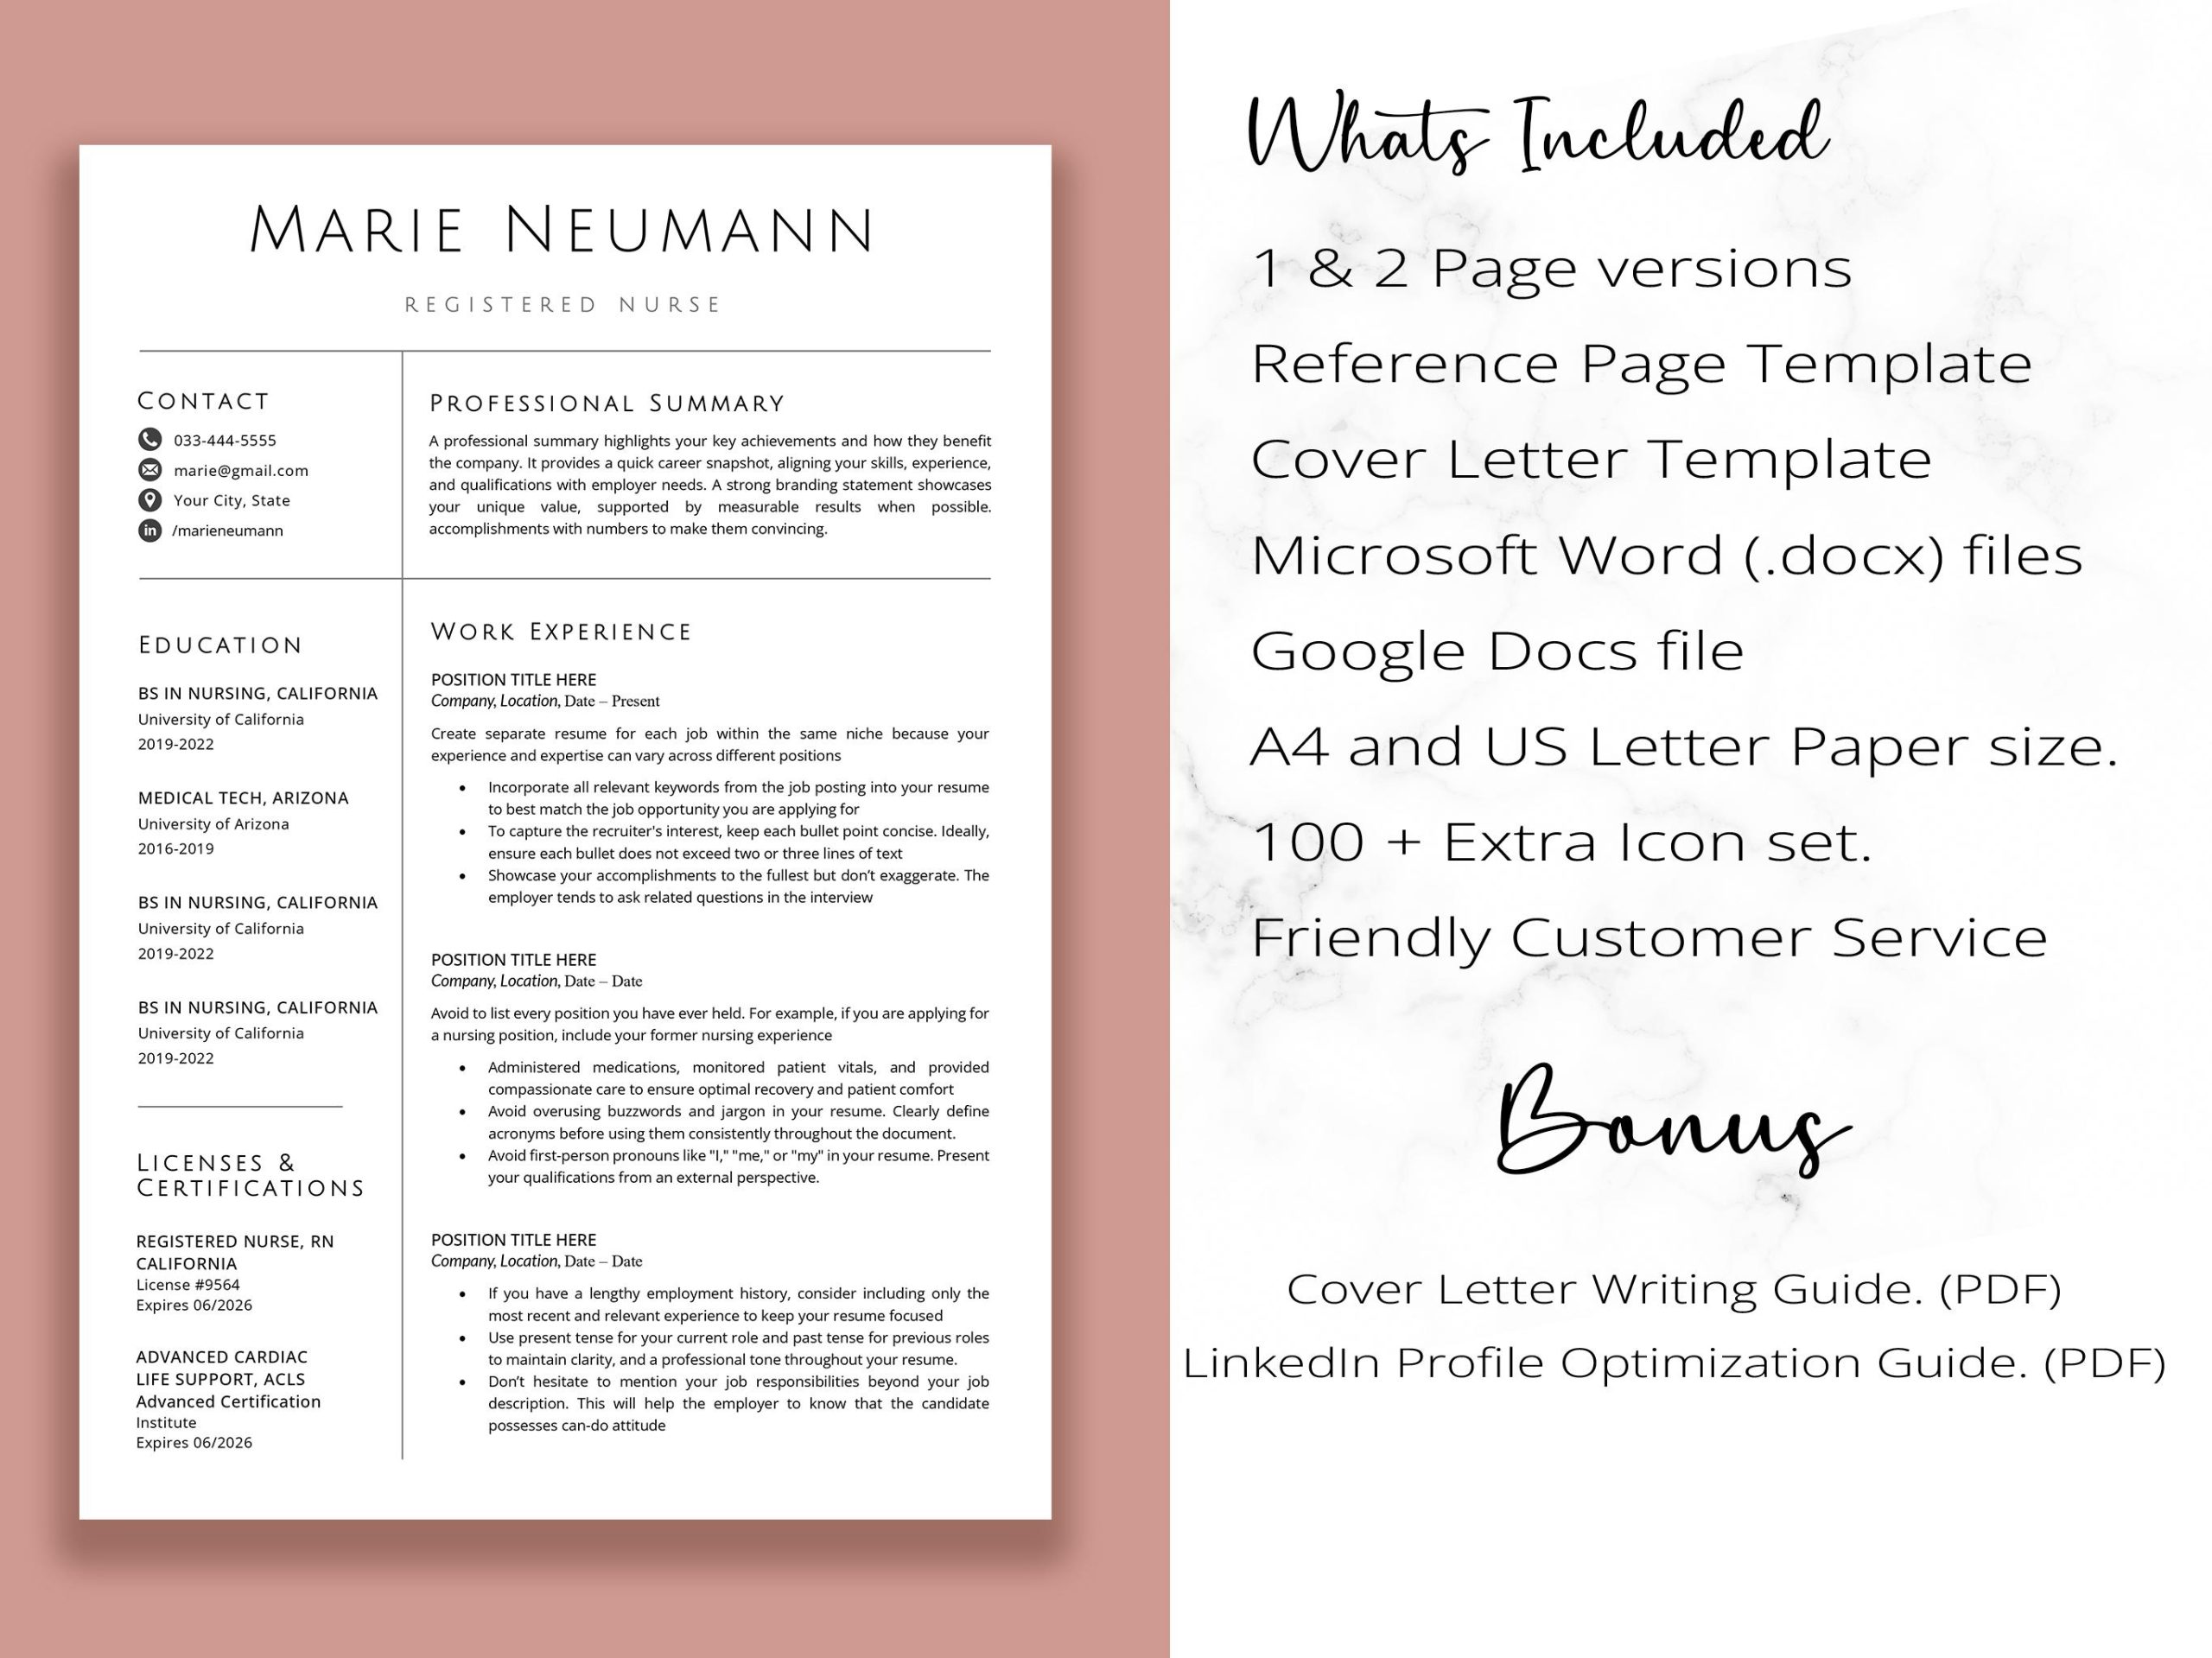 MARIE NEUMANN
REGISTERED NURSE
CONTACT
033-444-5555
marie@gmail.com
Your City, State
in /marieneumann
PROFESSIONAL SUMMARY
A professional summary highlights your key achievements and how they benefit
the company. It provides a quick career snapshot, aligning your skills, experience,
and qualifications with employer needs. A strong branding statement showcases
your unique value, supported by measurable results when possible.
accomplishments with numbers to make them convincing.
EDUCATION
BS IN NURSING, CALIFORNIA
University of California
2019-2022
MEDICAL TECH, ARIZONA
University of Arizona
2016-2019
BS IN NURSING, CALIFORNIA
University of California
2019-2022
BS IN NURSING, CALIFORNIA
University of California
2019-2022
LICENSES &
CERTIFICATIONS
REGISTERED NURSE, RN
CALIFORNIA
License #9564
Expires 06/2026
ADVANCED CARDIAC
LIFE SUPPORT, ACLS
Advanced Certification
Institute
Expires 06/2026
WORK EXPERIENCE
POSITION TITLE HERE
Company, Location, Date – Present
Create separate resume for each job within the same niche because your
experience and expertise can vary across different positions
• Incorporate all relevant keywords from the job posting into your resume
to best match the job opportunity you are applying for
• To capture the recruiter's interest, keep each bullet point concise. Ideally,
ensure each bullet does not exceed two or three lines of text
• Showcase your accomplishments to the fullest but don't exaggerate. The
employer tends to ask related questions in the interview
POSITION TITLE HERE
Company, Location, Date – Date
Avoid to list every position you have ever held. For example, if you are applying for
a nursing position, include your former nursing experience
• Administered medications, monitored patient vitals, and provided
compassionate care to ensure optimal recovery and patient comfort
• Avoid overusing buzzwords and jargon in your resume. Clearly define
acronyms before using them consistently throughout the document.
• Avoid first-person pronouns like "I," "me," or "my" in your resume. Present
your qualifications from an external perspective.
POSITION TITLE HERE
Company, Location, Date – Date
• If you have a lengthy employment history, consider including only the
most recent and relevant experience to keep your resume focused
• Use present tense for your current role and past tense for previous roles
to maintain clarity, and a professional tone throughout your resume.
• Don't hesitate to mention your job responsibilities beyond your job
description. This will help the employer to know that the candidate
possesses can-do attitude
Whats Included
1 & 2 Page versions
Reference Page Template
Cover Letter Template
Microsoft Word (.docx) files
Google Docs file
A4 and US Letter Paper size.
100 + Extra Icon set.
Friendly Customer Service
Bonus
Cover Letter Writing Guide. (PDF)
LinkedIn Profile Optimization Guide. (PDF)